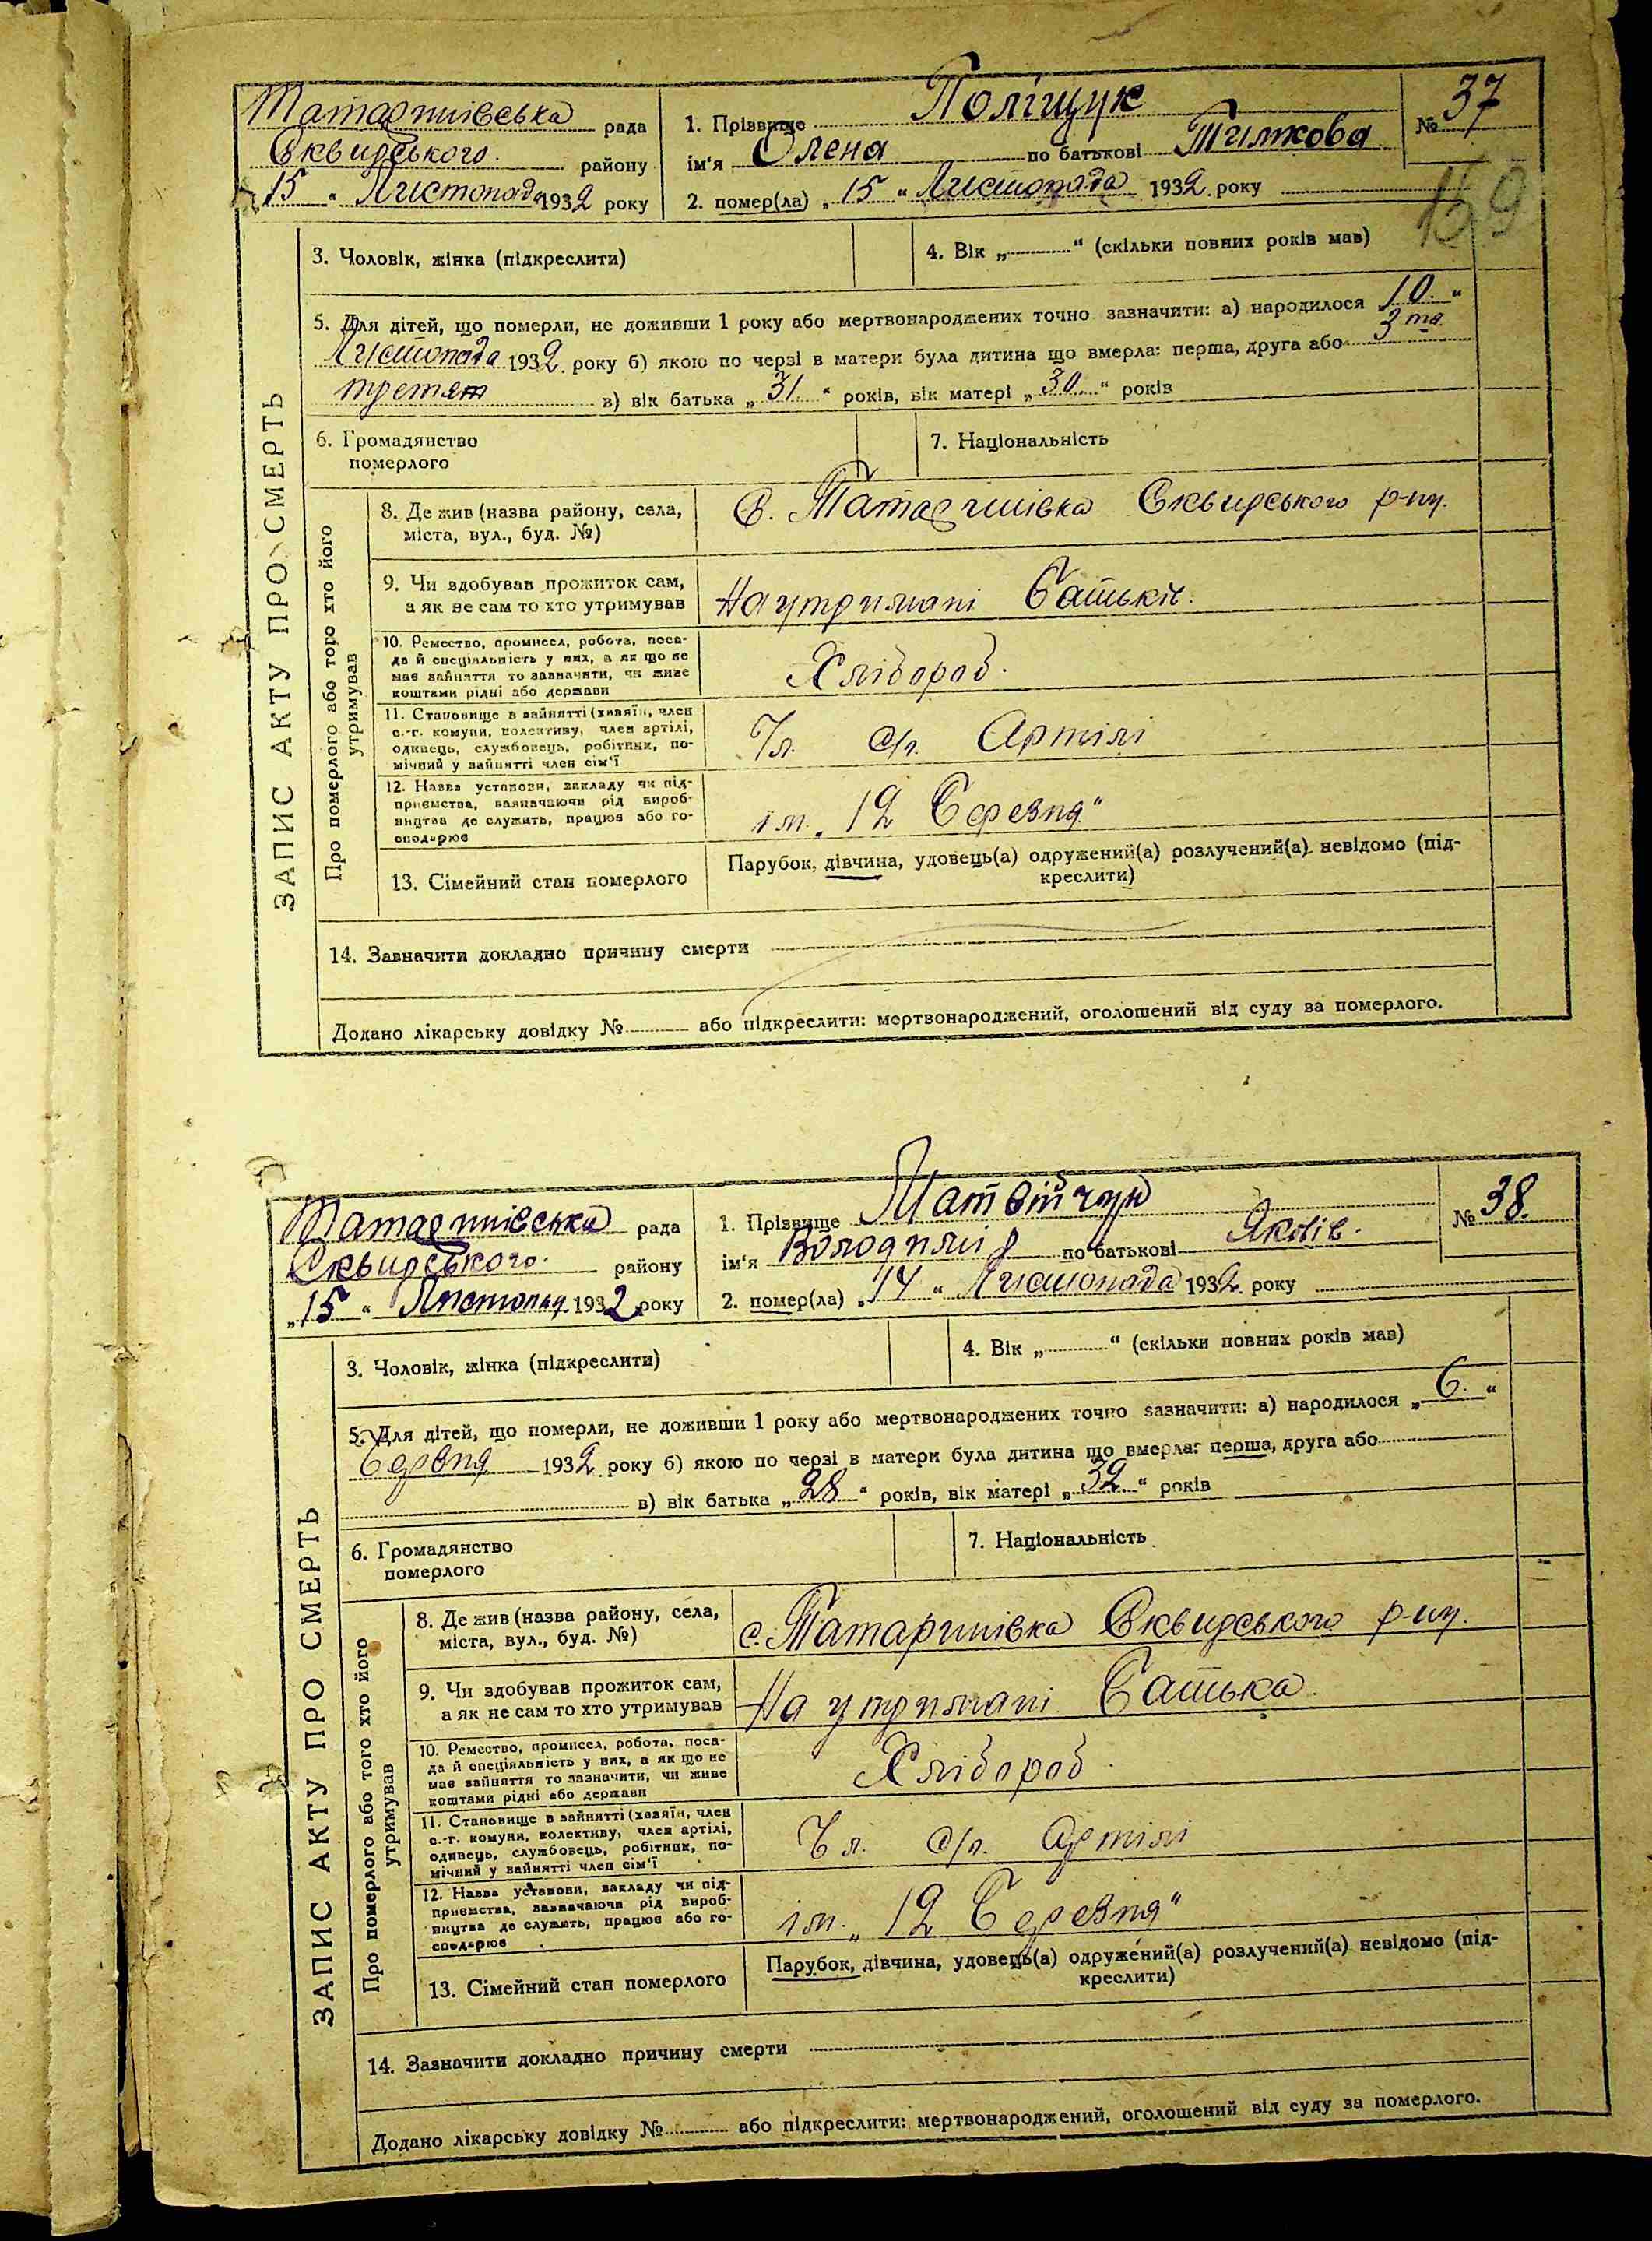 Татаршиівська рада
Сквирського району
"15" Листопада 1932 року
1. Прізвище Поліщук
ім'я Олена по батькові Тимкова
№ 37
2. помер(ла) "15" Листопада 1932 року
159
ЗАПИС АКТУ ПРО СМЕРТЬ
3. Чоловік, жінка (підкреслити)
4. Вік „ “ (скільки повних років мав)
5. Для дітей, що померли, не доживши 1 року або мертвонароджених точно зазначити: а) народилося 10 “
Листопада 1932 року б) якою по черзі в матери була дитина що вмерла: перша, друга або 3тя
третят в) вік батька „ 31 “ років, вік матері „ 30 “ років
6. Громадянство
померлого
7. Національність
Про померлого або того хто його
утримував
8. Де жив (назва району, села,
міста, вул., буд. №)
С. Татаршиівка Сквирського р-ну.
9. Чи здобував прожиток сам,
а як не сам то хто утримував
На утримані Батьків.
10. Ремество, промисел, робота, поса-
да й спеціяльність у них, а як що не
має зайняття то зазначити, чи живе
коштами рідні або держави
Хлібороб.
11. Становище в зайнятті (хазяїн, член
с.-г. комуни, колективу, член артілі,
одинець, службовець, робітник, по-
мічний у зайнятті член сім'ї
Чл. с/г. Артілі
12. Назва установи, закладу чи під-
приємства, зазначаючи рід вироб-
ництва де служить, працює або го-
сподарює
ім. „12 Березня“
13. Сімейний стан померлого
Парубок, дівчина, удовець(а) одружений(а) розлучений(а) невідомо (під-
креслити)
14. Зазначити докладно причину смерти
Додано лікарську довідку № або підкреслити: мертвонароджений, оголошений від суду за померлого.
Татаршиівська рада
Сквирського району
„15 “ Листопад 1932 року
1. Прізвище Матвійчук
ім'я Володимір по батькові Яковів.
№ 38.
2. помер(ла) „14 “ Листопада 1932 року
ЗАПИС АКТУ ПРО СМЕРТЬ
3. Чоловік, жінка (підкреслити)
4. Вік „ “ (скільки повних років мав)
5. Для дітей, що померли, не доживши 1 року або мертвонароджених точно зазначити: а) народилося „ 6. “
1932 року б) якою по черзі в матери була дитина що вмерла: перша, друга або
в) вік батька „ 28 “ років, вік матері „ 32 “ років
6. Громадянство
померлого
7. Національність
Про померлого або того хто його
утримував
8. Де жив (назва району, села,
міста, вул., буд. №)
с. Татаршиівка Сквирського р-ну.
9. Чи здобував прожиток сам,
а як не сам то хто утримував
На утримані Батька.
10. Ремество, промисел, робота, поса-
да й спеціяльність у них, а як що не
має зайняття то зазначити, чи живе
коштами рідні або держави
Хлібороб.
11. Становище в зайнятті (хазяїн, член
с.-г. комуни, колективу, член артілі,
одинець, службовець, робітник, по-
мічний у зайнятті член сім'ї
Чл. с/г. артілі
12. Назва установи, закладу чи під-
приємства, зазначаючи рід вироб-
ництва де служить, працює або го-
сподарює
ім. „12 Березня“
13. Сімейний стан померлого
Парубок, дівчина, удовець(а) одружений(а) розлучений(а) невідомо (під-
креслити)
14. Зазначити докладно причину смерти
Додано лікарську довідку № або підкреслити: мертвонароджений, оголошений від суду за померлого.